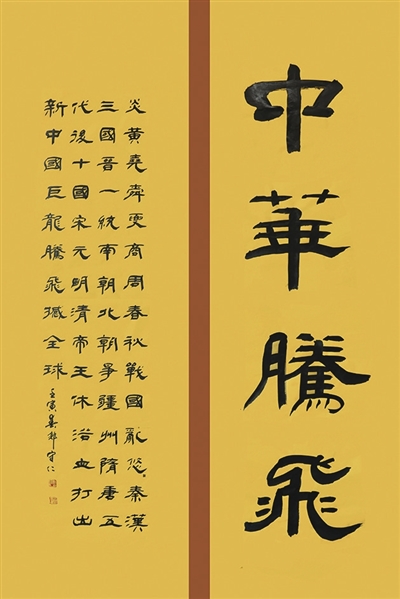 中華騰飛
炎黃堯舜夏商周春秋戰國亂悠々秦漢
三國晉一統南朝北朝爭疆州隋唐五
代後十國宋元明清帝王休浴血打出
新中國巨龍騰飛撼全球
壬寅 守仁